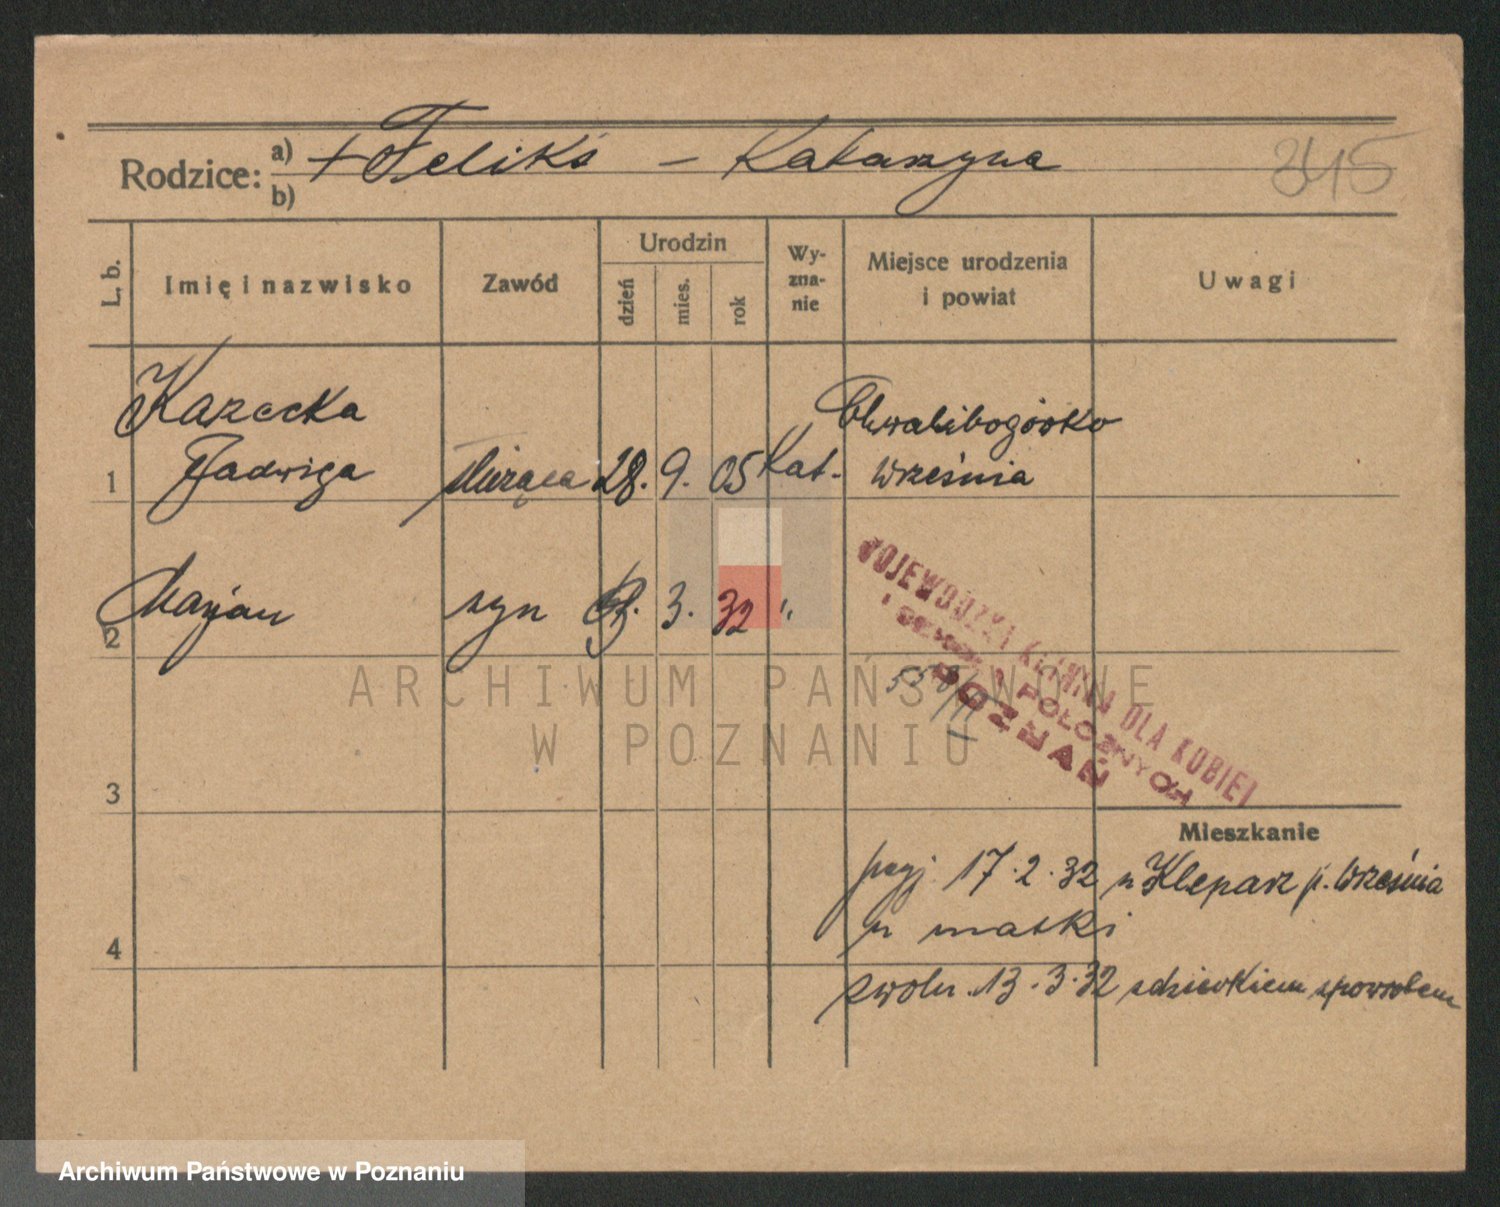 Rodzice: a) + Feliks – Katarzyna
b)
345
L. b.
Imię i nazwisko
Zawód
Urodzin
dzień
mies.
rok
Wy-
zna-
nie
Miejsce urodzenia
i powiat
Uwagi
Kazecka Chwalibogówko
1 Jadwiga służąca 28. 9. 05 Kat. Września
2 Marjan syn 3. 32 "
WOJEWÓDZKA KLINIKA DLA KOBIET
I POŁOŻNYCH
POZNAŃ
ARCHIWUM PAŃSTWOWE
W POZNANIU
3
Mieszkanie
przyj. 17.2.32 z Kleparz p. Września
u matki
4
zwoln. 13.3.32 z dzieckiem z powrotem
Archiwum Państwowe w Poznaniu